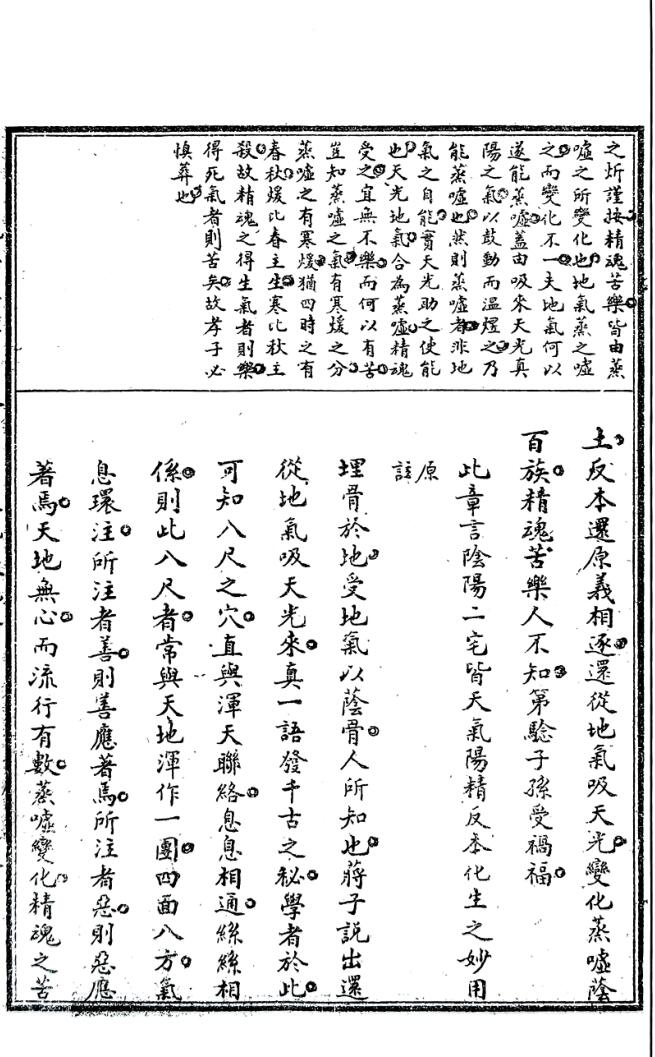 之炘謹按精魂苦樂皆由蒸
噓之所變化也地氣蒸之噓
之而變化不一夫地氣何以
遂能蒸噓蓋由吸來天光真
陽之氣以鼓動而溫煜之乃
能蒸噓也然則蒸噓者非地
氣之自能實天光助之使能
也天光地氣合為蒸噓精魂
受之宜無不樂而何以有苦
豈知蒸噓之氣有寒煖之分
蒸噓之有寒煖猶四時之有
春秋煖比春主生寒比秋主
殺故精魂之得生氣者則樂
得死氣者則苦矣故孝子必
慎葬也
土反本還原義相逐還從地氣吸天光變化蒸噓蔭
百族精魂苦樂人不知第驗子孫受禍福
此章言陰陽二宅皆天氣陽精反本化生之妙用
原註
埋骨於地受地氣以蔭骨人所知也蔣子說出還
從地氣吸天光來真一語發千古之秘學者於此
可知八尺之穴直與渾天聯絡息息相通絲絲相
係則此八尺者常與天地渾作一團四面八方氣
息環注所注者善則善應著焉所注者惡則惡應
著焉天地無心而流行有數蒸噓變化精魂之苦